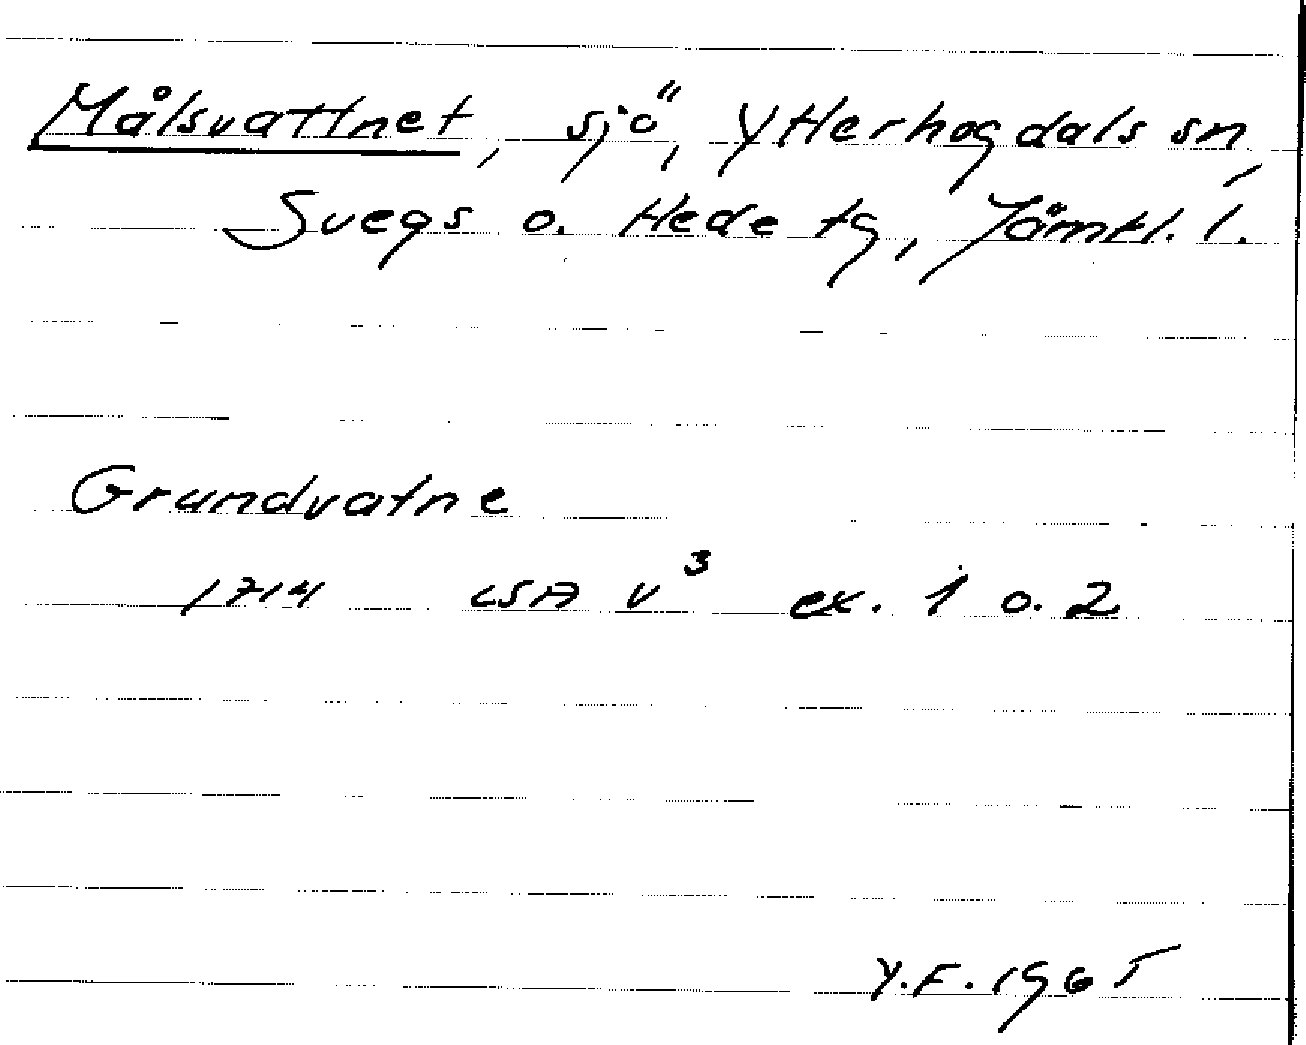 Målsvattnet, sjö, Ytterhogdals sn,
Svegs o. Hede tg, Jämtl. l.
Grundvatne
1714 LSA V³ ex. 1 o. 2
Y.F. 1965